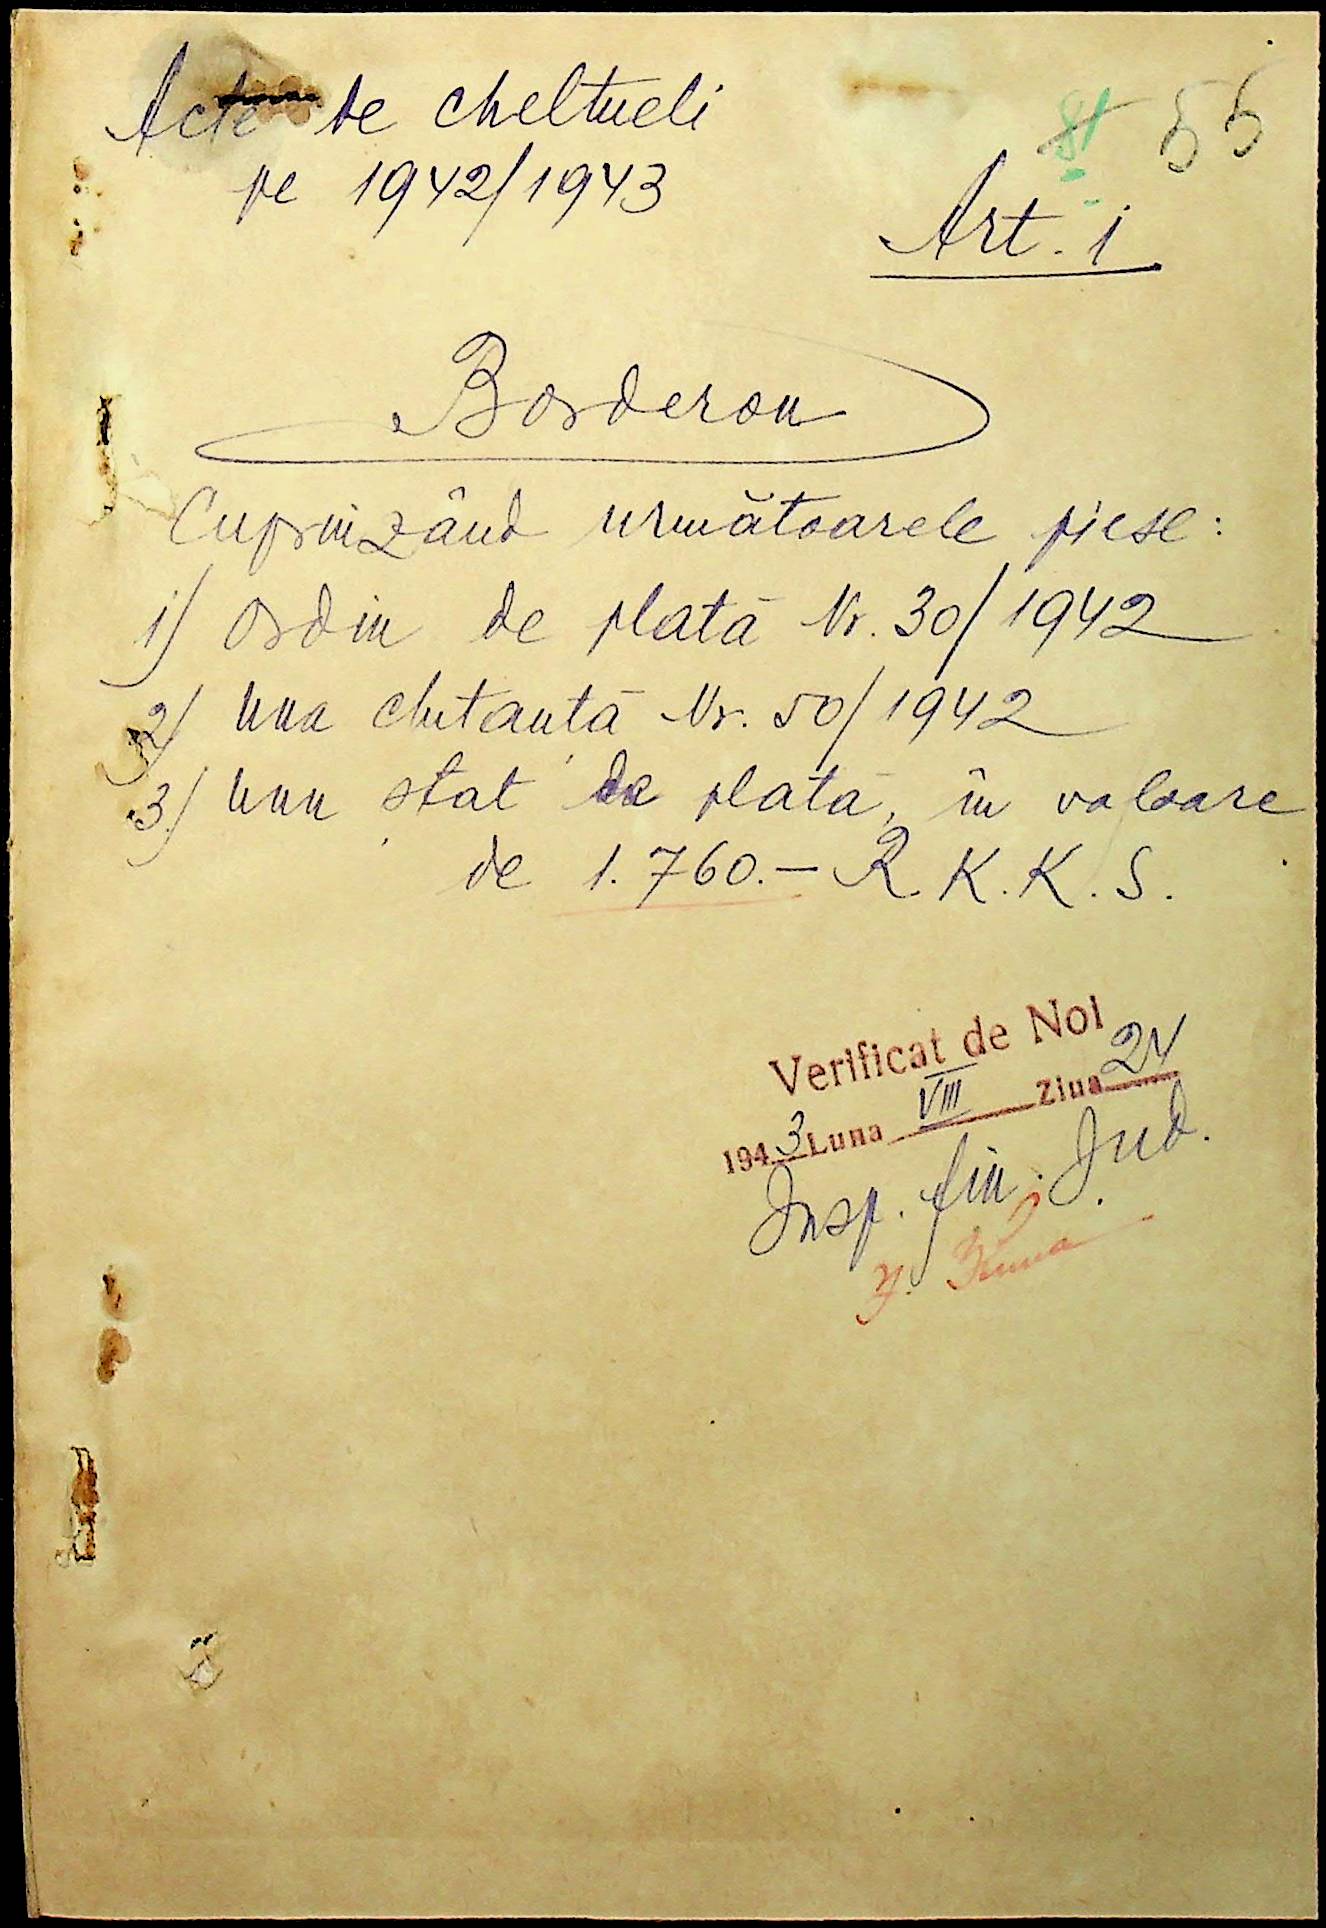 Acte de cheltueli
pe 1942/1943
81 55
Art. 1
Borderou
Cuprinzând următoarele piese:
1) Ordin de plată Nr. 30/1942
2) una chitanță Nr. 50/1942
3) unu stat de plată, în valoare
de 1.760.— R.K.K.S.
Verificat de Noi
1943 Luna VIII Ziua 24
Insp. fin. Jud.